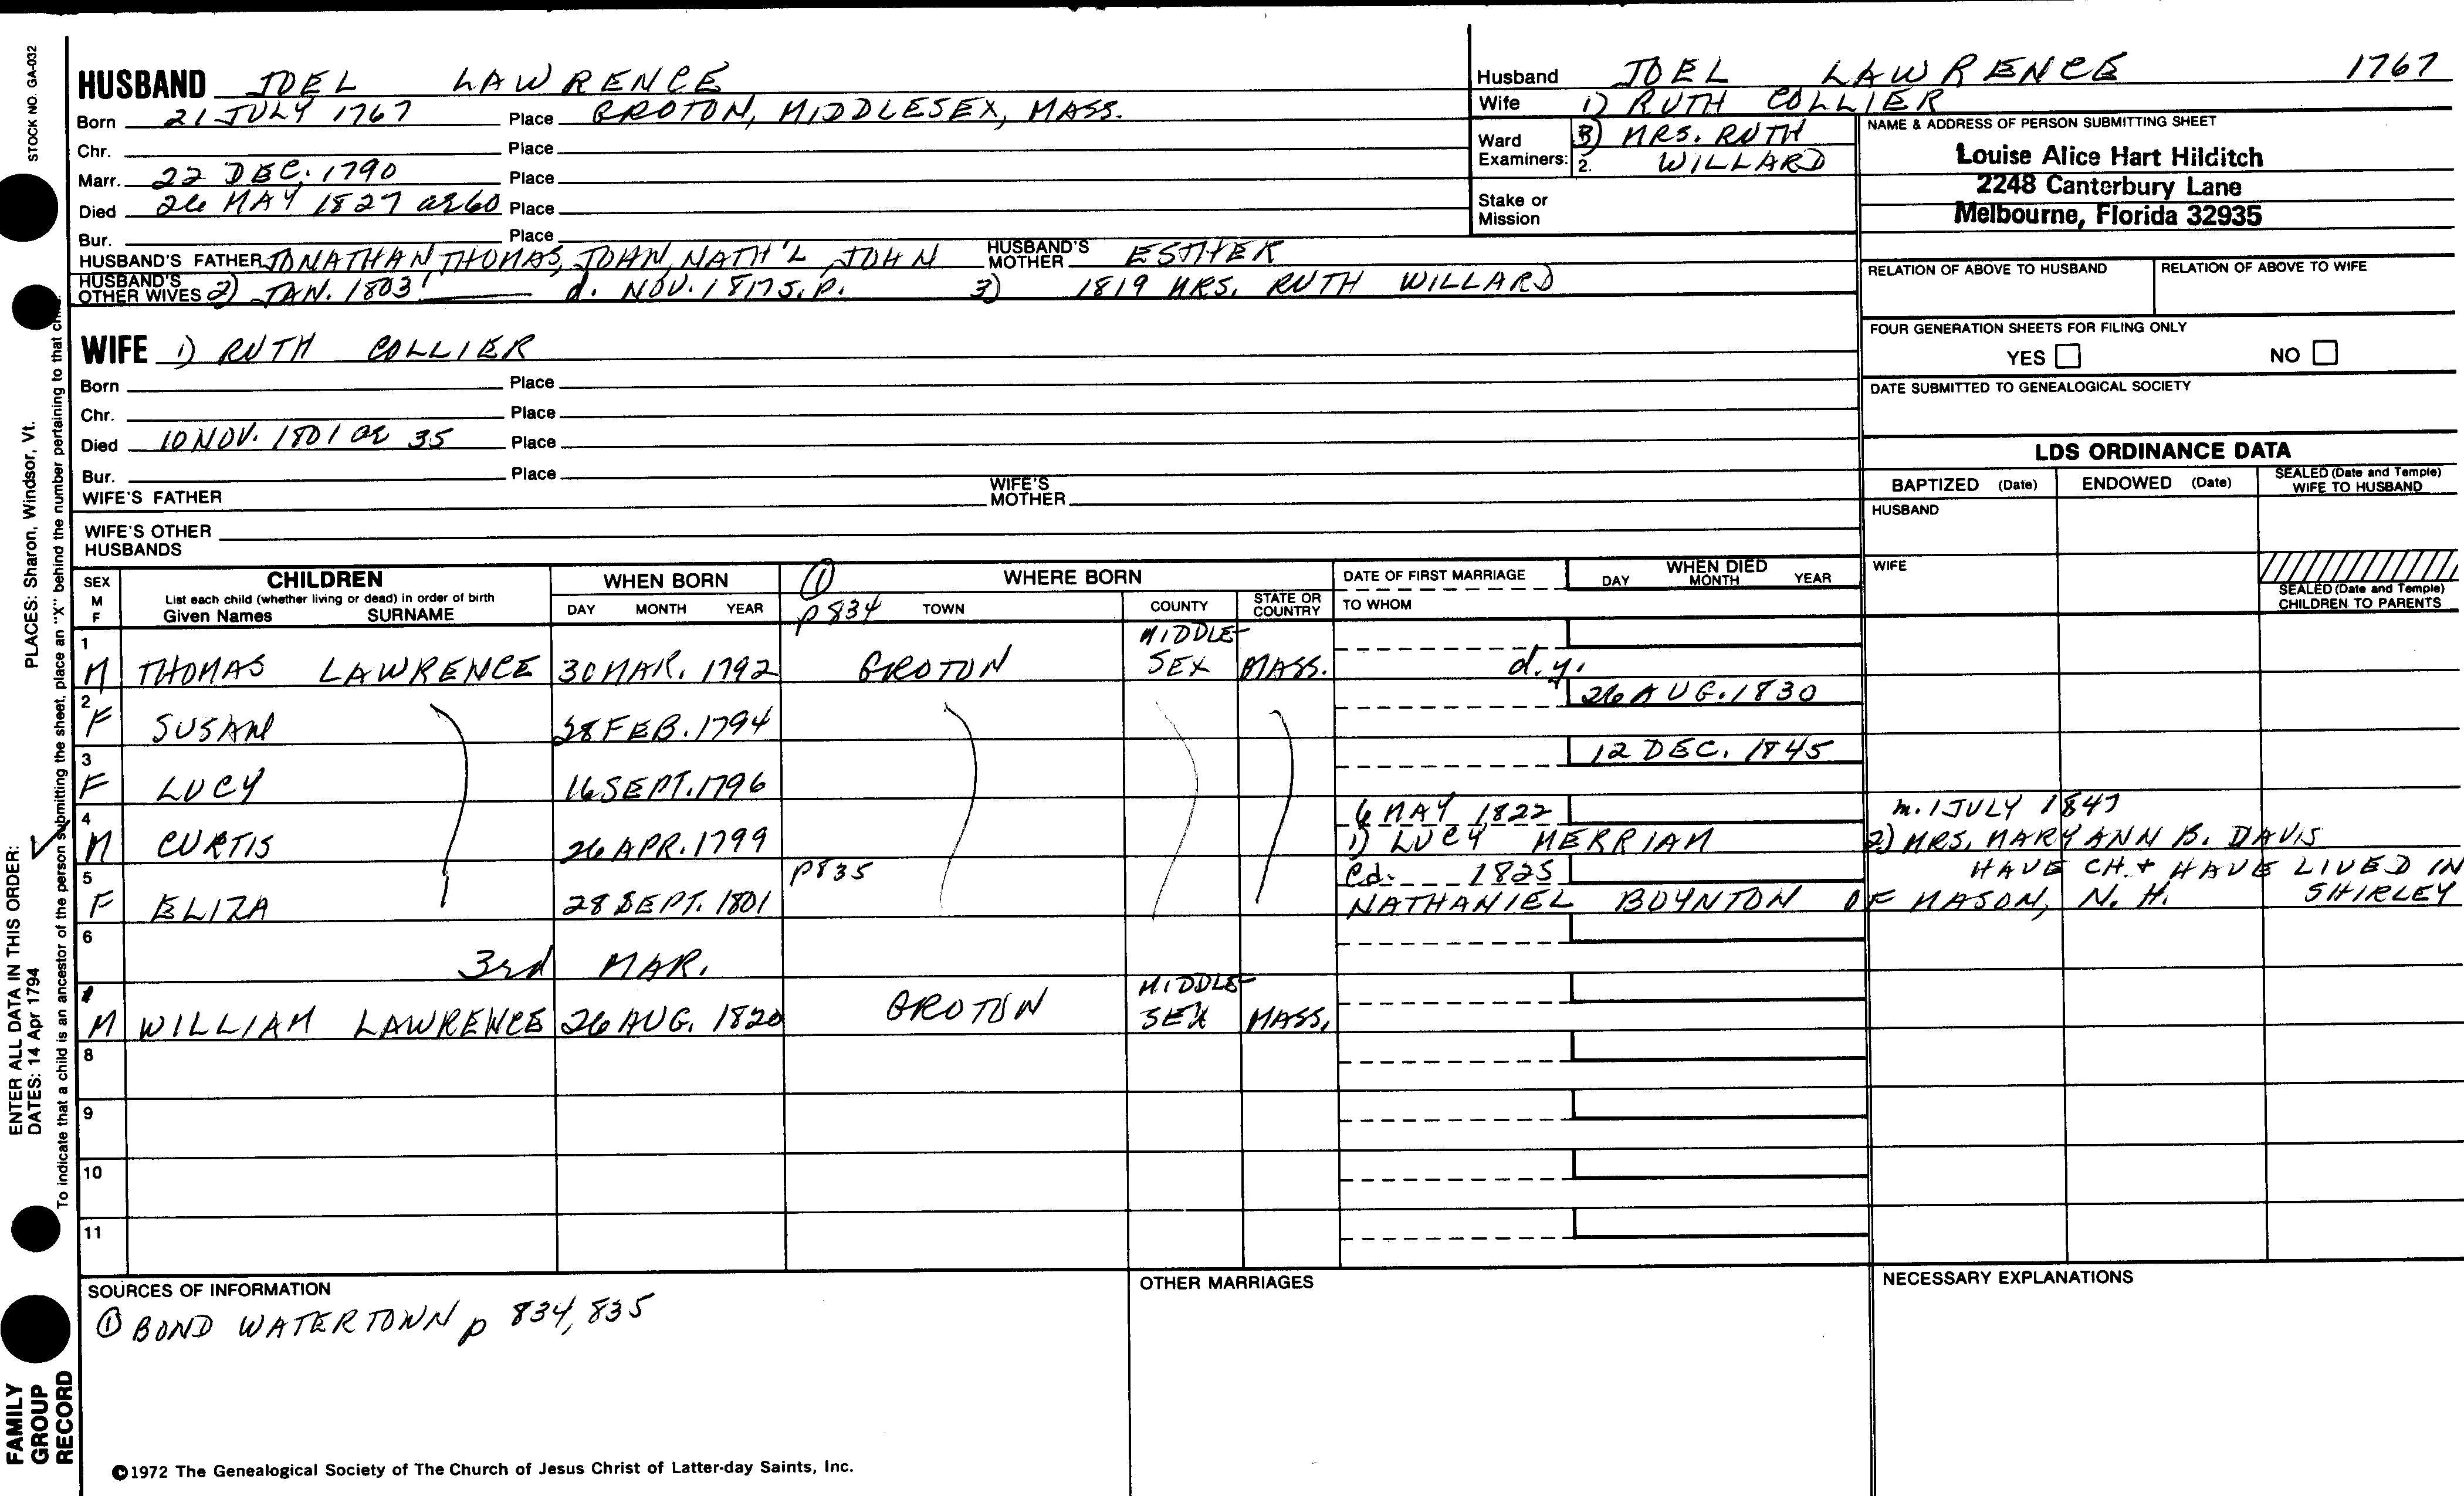 STOCK NO. GA-032
HUSBAND JOEL LAWRENCE
Born 21 JULY 1767 Place GROTON, MIDDLESEX, MASS.
Chr. Place
Marr. 22 DEC. 1790 Place
Died 26 MAY 1827 ae 60 Place
Bur. Place
HUSBAND'S FATHER JONATHAN, THOMAS, JOHN, NATH'L, JOHN HUSBAND'S MOTHER ESTHER
HUSBAND'S OTHER WIVES 2) JAN. 1803 d. NOV. 1817 s.p. 3) 1819 MRS. RUTH WILLARD
Husband JOEL LAWRENCE 1767
Wife 1) RUTH COLLIER
Ward Examiners: 3) MRS. RUTH
2. WILLARD
Stake or Mission
NAME & ADDRESS OF PERSON SUBMITTING SHEET
Louise Alice Hart Hilditch
2248 Canterbury Lane
Melbourne, Florida 32935
RELATION OF ABOVE TO HUSBAND RELATION OF ABOVE TO WIFE
FOUR GENERATION SHEETS FOR FILING ONLY
YES NO
DATE SUBMITTED TO GENEALOGICAL SOCIETY
WIFE 1) RUTH COLLIER
Born Place
Chr. Place
Died 10 NOV. 1801 ae 35 Place
Bur. Place
WIFE'S FATHER WIFE'S MOTHER
WIFE'S OTHER HUSBANDS
LDS ORDINANCE DATA
BAPTIZED (Date) ENDOWED (Date) SEALED (Date and Temple) WIFE TO HUSBAND
HUSBAND
WIFE
SEALED (Date and Temple) CHILDREN TO PARENTS
SEX M F
CHILDREN
List each child (whether living or dead) in order of birth
Given Names SURNAME
WHEN BORN
DAY MONTH YEAR
① p834
WHERE BORN
TOWN COUNTY STATE OR COUNTRY
DATE OF FIRST MARRIAGE
TO WHOM
WHEN DIED
DAY MONTH YEAR
1 M THOMAS LAWRENCE 30 MAR. 1792 GROTON MIDDLE-SEX MASS. d.y.
2 F SUSAN 28 FEB. 1794 26 AUG. 1830
3 F LUCY 16 SEPT. 1796 12 DEC. 1845
4 M CURTIS 26 APR. 1799 6 MAY 1822 m. 1 JULY 1847
1) LUCY MERRIAM 2) MRS. MARY ANN B. DAVIS
5 F ELIZA 28 SEPT. 1801 p835 Cd. 1825 HAVE CH. + HAVE LIVED IN
NATHANIEL BOYNTON OF MASON, N.H. SHIRLEY
6 3rd MAR.
1 M WILLIAM LAWRENCE 26 AUG. 1820 GROTON MIDDLE-SEX MASS.
8
9
10
11
SOURCES OF INFORMATION
① BOND WATERTOWN p 834, 835
OTHER MARRIAGES
NECESSARY EXPLANATIONS
©1972 The Genealogical Society of The Church of Jesus Christ of Latter-day Saints, Inc.
ENTER ALL DATA IN THIS ORDER:
PLACES: Sharon, Windsor, Vt.
DATES: 14 Apr 1794
To indicate that a child is an ancestor of the person submitting the sheet, place an "X" behind the number pertaining to that
FAMILY
GROUP
RECORD